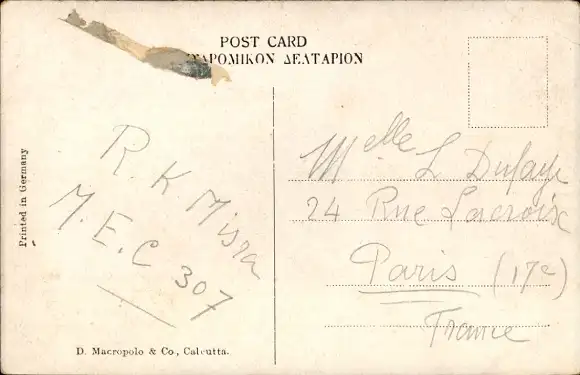 POST CARD
ΧΥΔΡΟΜΙΚΟΝ ΔΕΛΤΑΡΙΟΝ
Printed in Germany
R. K Misra
M. E. C 307
D. Macropolo & Co., Calcutta.
Melle L Dufaye
24 Rue Lacroix
Paris (17e)
France